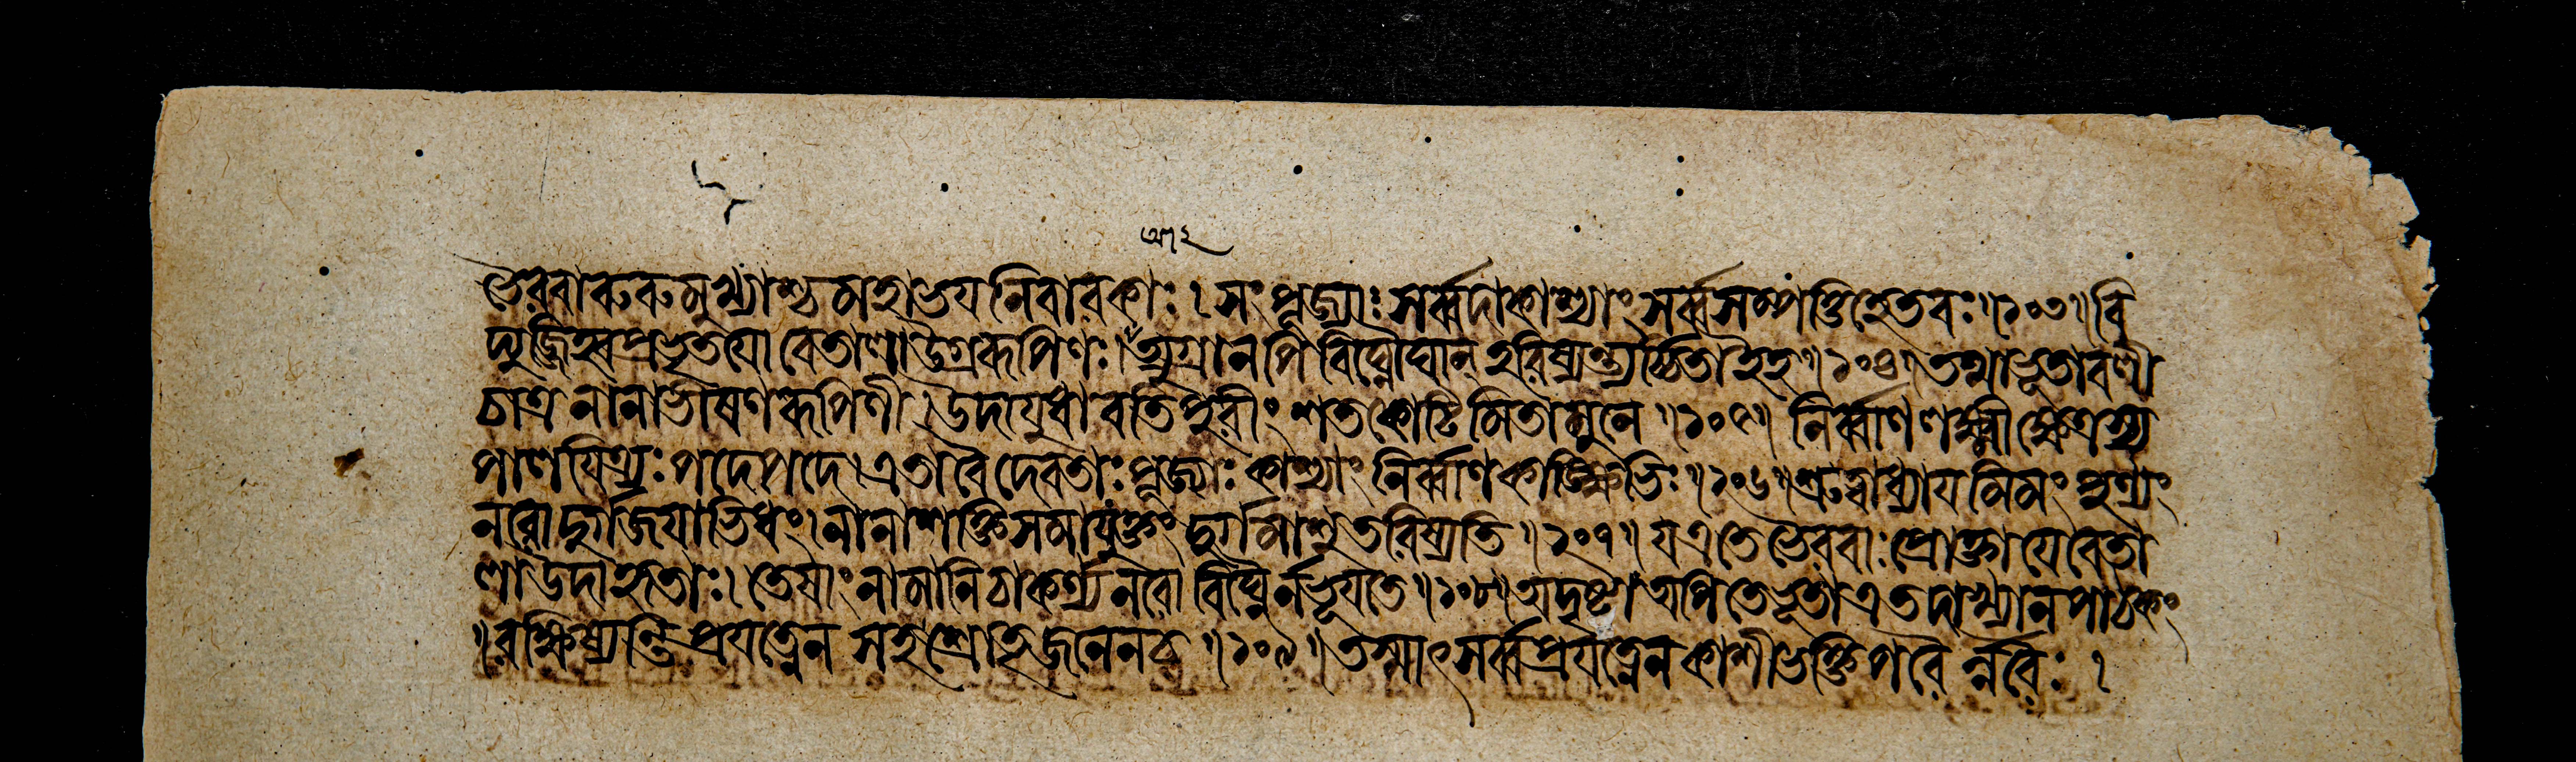 ভৈরবারুরুমুখ্যাশ্চমহাভযনিবারকাঃ। সংপূজ্যাঃ সর্ব্বদাকাশ্যাং সর্ব্বসম্পত্তিহেতবঃ॥১০৩॥ বি
দ্যুজ্জিহ্বপ্রভৃতযো বেতালাউগ্ররূপিণঃ। অত্যুগ্রানপি বিঘ্নৌঘান্ হরিষ্যন্ত্যর্চ্চিতাইহ॥১০৪॥ তথাভূতাবলী
চাত্র নানাভীষণরূপিণী। উদাযুধাবতি পুরীং শতকোটিমিতামুনে॥১০৫॥ নির্ব্বাণলক্ষ্মীক্ষেত্রস্য
পালযিত্র্যঃ পদেপদে। এতাবৈদেবতাঃ পূজ্যাঃ কাশ্যাং নির্ব্বাণকাঙ্ক্ষিভিঃ॥১০৬॥ শ্রুত্বাধ্যাযমিমং পুণ্যং
নরোদুর্গজযাভিধং। নানাশক্তিসমাযুক্তং দুর্গমাশুতরিষ্যতি॥১০৭॥ যএতে ভৈরবাঃ প্রোক্তা যেবেতা
লাউদাহৃতাঃ। তেষাং নামানিচাকর্ণ্যনরো বিঘ্নৈর্নভূযতে॥১০৮॥ অদৃষ্টাঅপিতেভূতাএতদাখ্যানপাঠকং
॥রক্ষিষ্যন্তিপ্রযত্নেন সহশ্রোতৃজনেনচ॥১০৯॥ তস্মাৎসর্ব্বপ্রযত্নেনকাশীভক্তিপরৈ র্নরৈঃ।